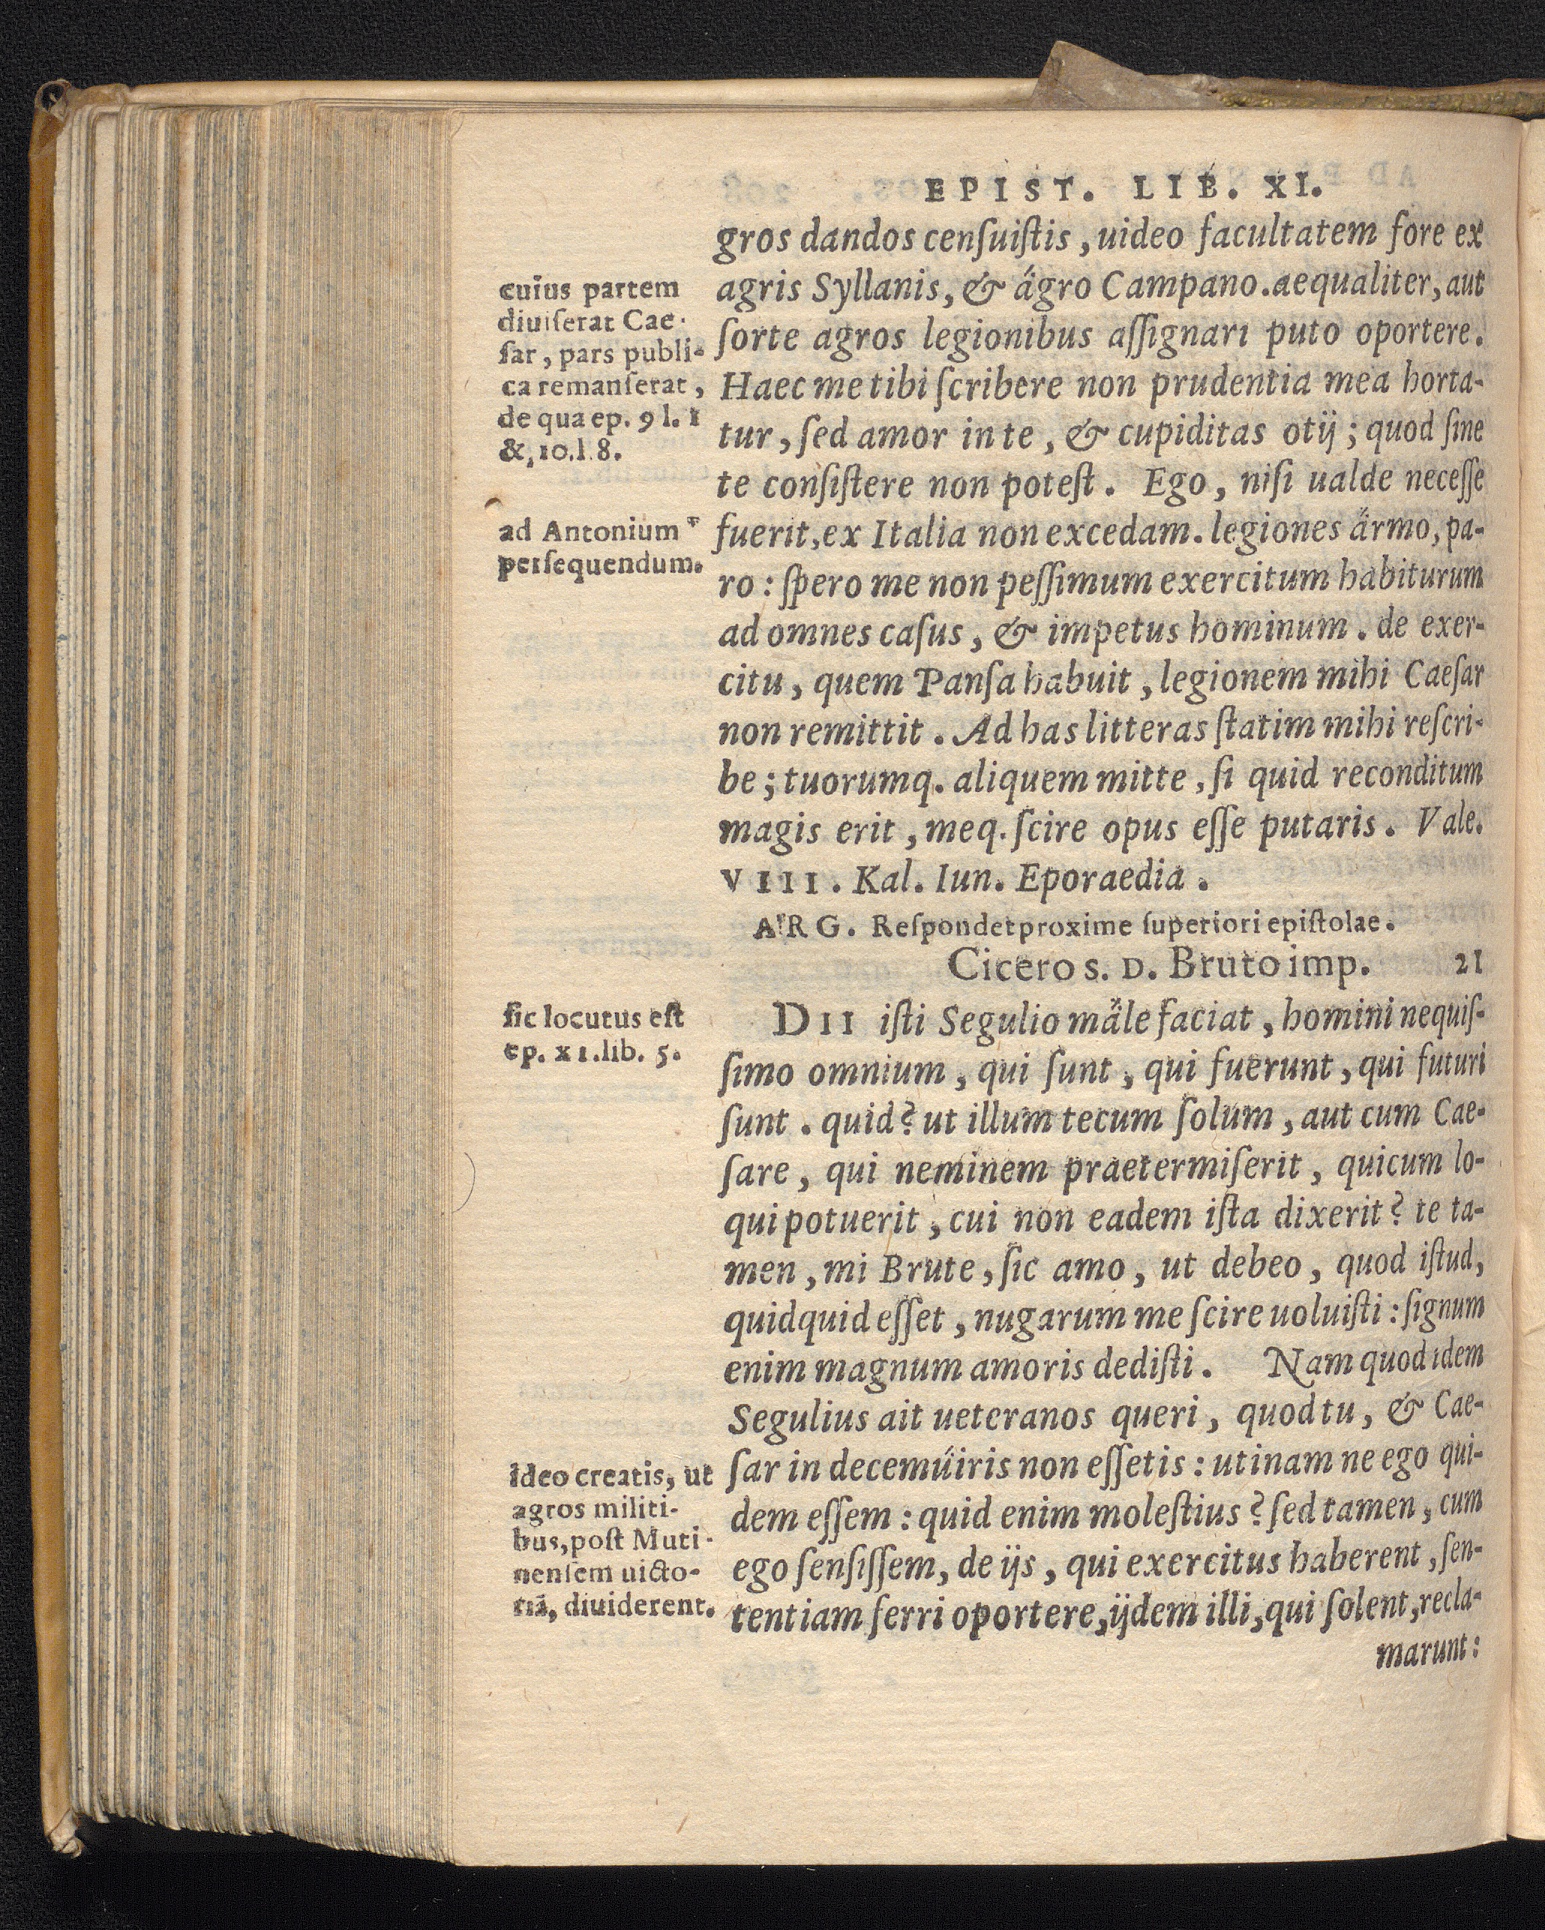 EPIST. LIB. XI.
gros dandos cenſuiſtis, uideo facultatem fore ex
agris Syllanis, & ägro Campano. aequaliter, aut
ſorte agros legionibus aſſignari puto oportere.
Haec me tibi ſcribere non prudentia mea horta-
tur, ſed amor in te, & cupiditas otij; quod ſine
te conſiſtere non poteſt. Ego, niſi ualde neceſſe
fuerit, ex Italia non excedam. legiones ärmo, pa-
ro: ſpero me non peſſimum exercitum habiturum
ad omnes caſus, & impetus hominum. de exer-
citu, quem Panſa habuit, legionem mihi Caeſar
non remittit. Ad has litteras ſtatim mihi reſcri-
be; tuorumq. aliquem mitte, ſi quid reconditum
magis erit, meq. ſcire opus eſſe putaris. Vale.
VIII. Kal. Iun. Eporaedia.
cuius partem
diuiſerat Cae-
ſar, pars publi-
ca remanſerat,
de qua ep. 9 l. 1
&, 10. l. 8.
ad Antonium
perſequendum.
ARG. Reſpondet proxime ſuperiori epiſtolae.
Cicero s. D. Bruto imp. 21
DII iſti Segulio mäle faciat, homini nequiſ-
ſimo omnium, qui ſunt, qui fuerunt, qui futuri
ſunt. quid? ut illum tecum ſolum, aut cum Cae-
ſare, qui neminem praetermiſerit, quicum lo-
qui potuerit, cui non eadem iſta dixerit? te ta-
men, mi Brute, ſic amo, ut debeo, quod iſtud,
quidquid eſſet, nugarum me ſcire uoluiſti: ſignum
enim magnum amoris dediſti. Nam quod idem
Segulius ait ueteranos queri, quod tu, & Cae-
ſar in decemúiris non eſſetis: utinam ne ego qui-
dem eſſem: quid enim moleſtius? ſed tamen, cum
ego ſenſiſſem, de ijs, qui exercitus haberent, ſen-
tentiam ferri oportere, ijdem illi, qui ſolent, recla-
marunt:
ſic locutus eſt
ep. XI. lib. 5.
ideo creatis, ut
agros militi-
bus, poſt Muti-
nenſem uicto-
riā, diuiderent.